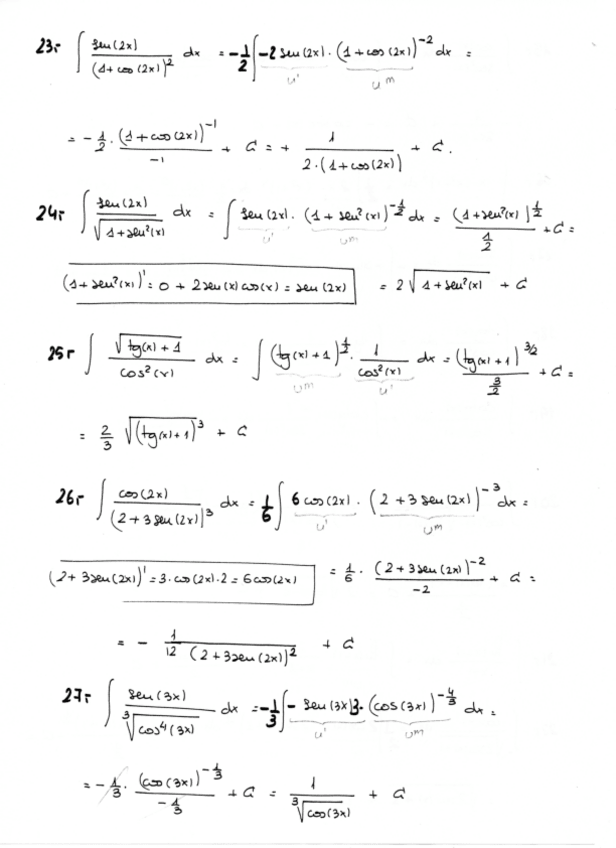 23r ∫ sen(2x)/(1+cos(2x))² dx = -1/2 ∫ -2 sen(2x) · (1+cos(2x))^-2 dx =
u' u^m
= -1/2 · (1+cos(2x))^-1/-1 + C = + 1/(2·(1+cos(2x))) + C.
24r ∫ sen(2x)/√(1+sen²(x)) dx = ∫ sen(2x) · (1+sen²(x))^(-1/2) dx = (1+sen²(x))^(1/2)/(1/2) + C =
u' u^m
(1+sen²(x))' = 0 + 2sen(x)cos(x) = sen(2x) = 2√(1+sen²(x)) + C
25r ∫ √(tg(x)+1)/cos²(x) dx = ∫ (tg(x)+1)^(1/2) · 1/cos²(x) dx = (tg(x)+1)^(3/2)/(3/2) + C =
u^m u'
= 2/3 √(tg(x)+1)³ + C
26r ∫ cos(2x)/(2+3sen(2x))³ dx = 1/6 ∫ 6cos(2x) · (2+3sen(2x))^-3 dx =
u' u^m
(2+3sen(2x))' = 3·cos(2x)·2 = 6cos(2x) = 1/6 · (2+3sen(2x))^-2/-2 + C =
= - 1/(12 (2+3sen(2x))²) + C
27r ∫ sen(3x)/∛(cos⁴(3x)) dx = -1/3 ∫ -sen(3x)3·(cos(3x))^(-4/3) dx =
u' u^m
= -1/3 · (cos(3x))^(-1/3)/(-1/3) + C = 1/∛(cos(3x)) + C